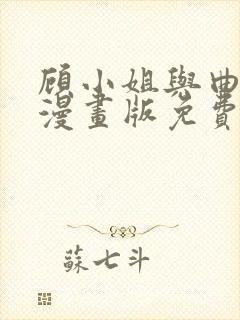 顾小姐與曲
漫畫版免費
蘇七斗